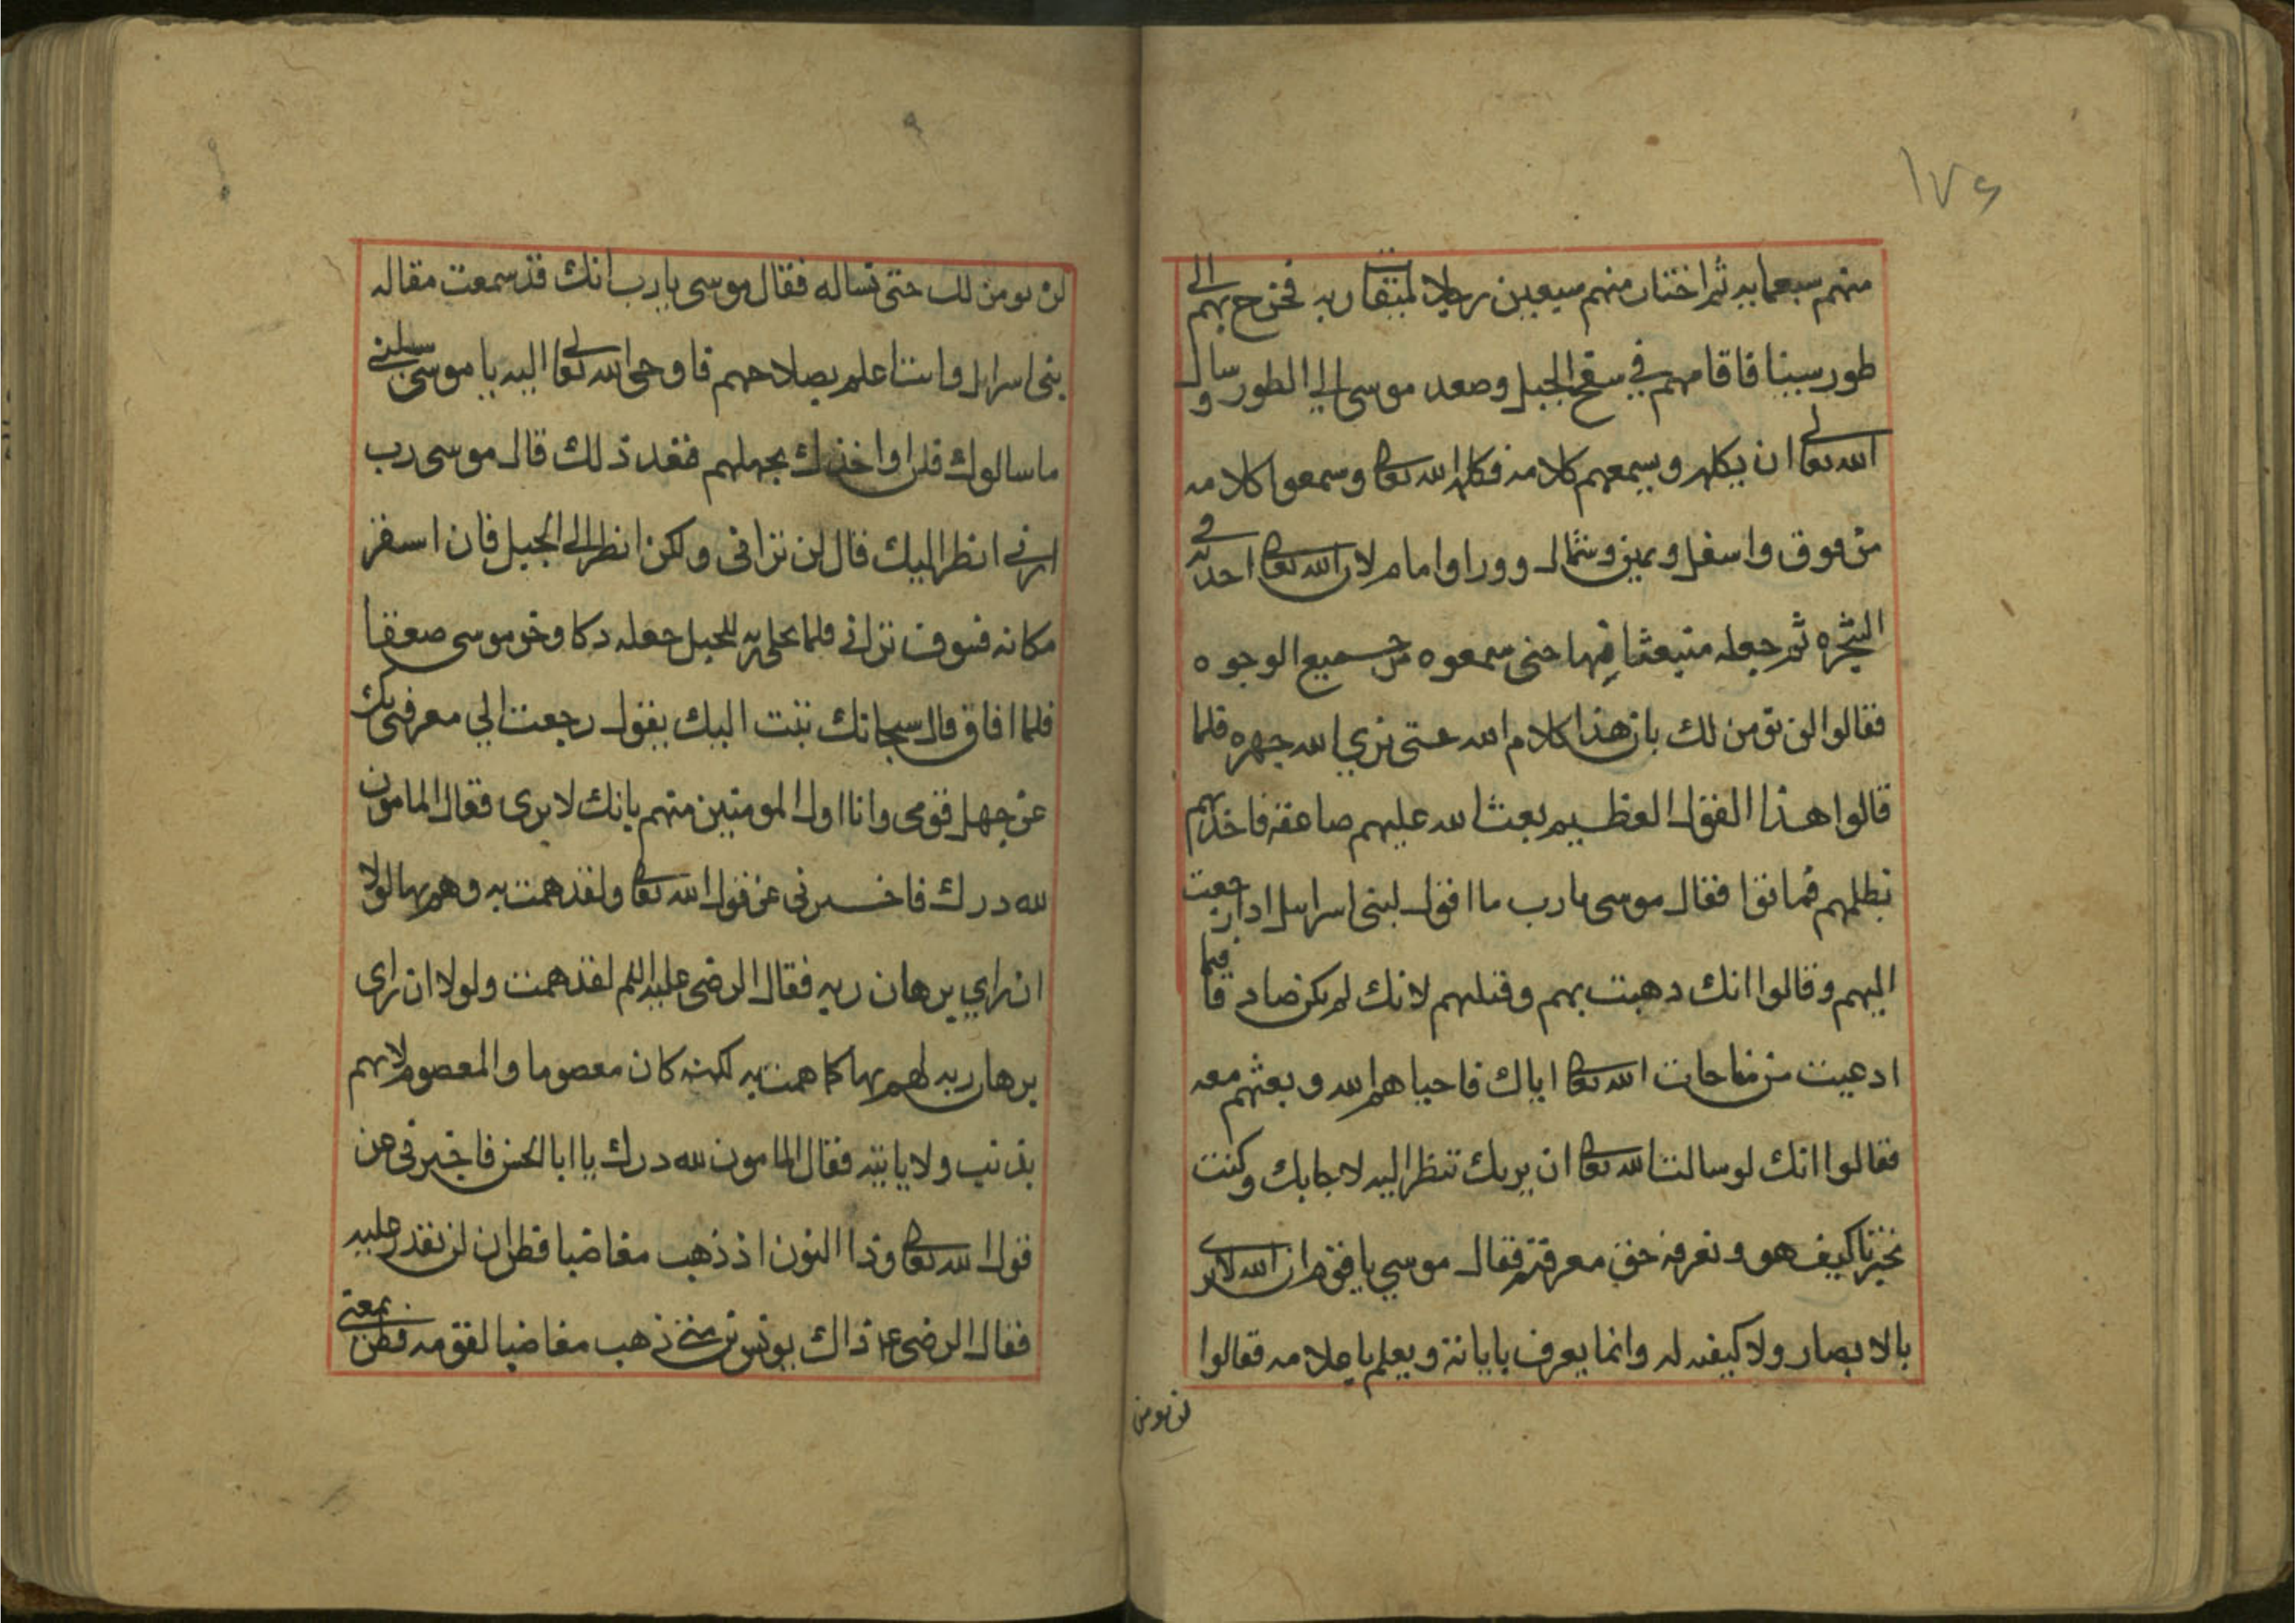 ١٧٤
منهم سبعمايه ثم اختار منهم سبعين رجلا لميقات ربه فخرج بهم الى
طور سينا فاقامهم في سفح الجبل وصعد موسى الي الطور وسال
الله تعالى ان يكلمه ويسمعهم كلامه فكلمه الله تعالى وسمعوا كلامه
من فوق واسفل ويمين وشمال وورا وامام لان الله تعالى احدثه في
الشجره ثم جعله منبعثا منها حتى سمعوه من جميع الوجوه
فقالوا لن نومن لك بان هذا كلام الله حتى نري الله جهره فلما
قالوا هذا القول العظيم بعث الله عليهم صاعقه فاخذتهم
بظلمهم فماتوا فقال موسى يا رب ما اقول لبنى اسرايل اذا رجعت
اليهم وقالوا انك ذهبت بهم وقتلهم لانك لم تكن صادقا فيما
ادعيت من مناجات الله تعالى اياك فاحياهم الله وبعثهم معه
فقالوا انك لو سالت الله تعالى ان يريك تنظر اليه لاجابك وكنت
تخبرنا كيف هو ونعرفه حق معرفته فقال موسي يا قوم ان الله لا يرى
بالابصار ولا كيفيه له وانما يعرف باياته ويعلم باعلامه فقالوا
لن نومن
لن نومن لك حتى تساله فقال موسى يا رب انك قد سمعت مقاله
بنى اسرايل وانت اعلم بصلاحهم فاوحى الله تعالى اليه يا موسى سلنى
ما سالوك فلن اواخذك بجهلهم فعند ذلك قال موسى رب
ارنى انظر اليك قال لن ترانى ولكن انظر الى الجبل فان استقر
مكانه فسوف ترانى فلما تجلى ربه للجبل جعله دكا وخر موسى صعقا
فلما افاق قال سبحانك تبت اليك يقول رجعت الي معرفتى بك
عن جهل قومى وانا اول المومنين منهم بانك لا ترى فقال المامون
لله درك فاخبرنى عن قول الله تعالى ولقد همت به وهم بها لولا
ان راي برهان ربه فقال الرضى عليه السلم لقد همت ولولا ان راى
برهان ربه لهم بها كما همت به لكنه كان معصوما والمعصوم لا يهم
بذنب ولا ياتيه فقال المامون لله درك يا ابا الحسن فاخبرنى عن
قول الله تعالى وذا النون اذ ذهب مغاضبا فظن ان لن نقدر عليه
فقال الرضى ع ذاك يونس بن متى ذهب مغاضبا لقومه فظن بمعنى